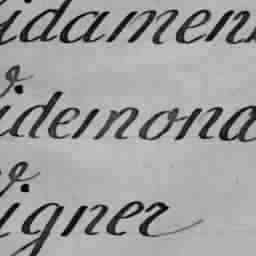 idamen
idemona
igner